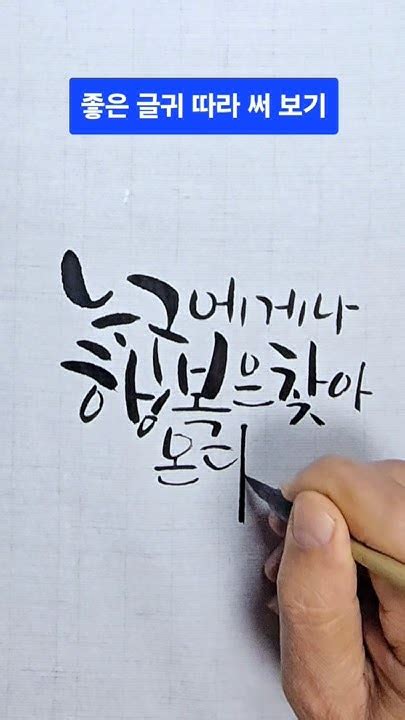 좋은 글귀 따라 써 보기
누구에게나
행복은찾아
온디